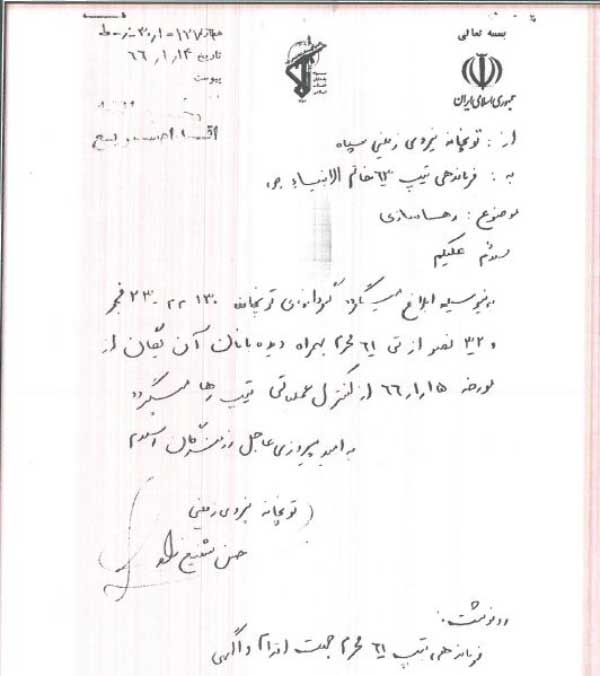 بسمه تعالی
جمهوری اسلامی ایران
تاریخ ۱۴/۱/۶۶
پیوست
از: توپخانه نیروی زمینی سپاه
به: فرماندهی تیپ ۶۳ خاتم الانبیاء
موضوع: رهاسازی
سلام علیکم
بدینوسیله ابلاغ میگردد گردانهای توپخانه ۱۳۰ ۲۳۰ فجر
و ۳۲ نصر از تیپ ۶۱ محرم بهمراه دیده بانان آن یگان از
مورخه ۱۵/۱/۶۶ از کنترل عملیاتی تیپ رها میگردد
به امید پیروزی عاجل رزمندگان اسلام
توپخانه نیروی زمینی
حسن شفیع زاده
رونوشت:
فرماندهی تیپ ۶۱ محرم جهت اقدام و آگهی